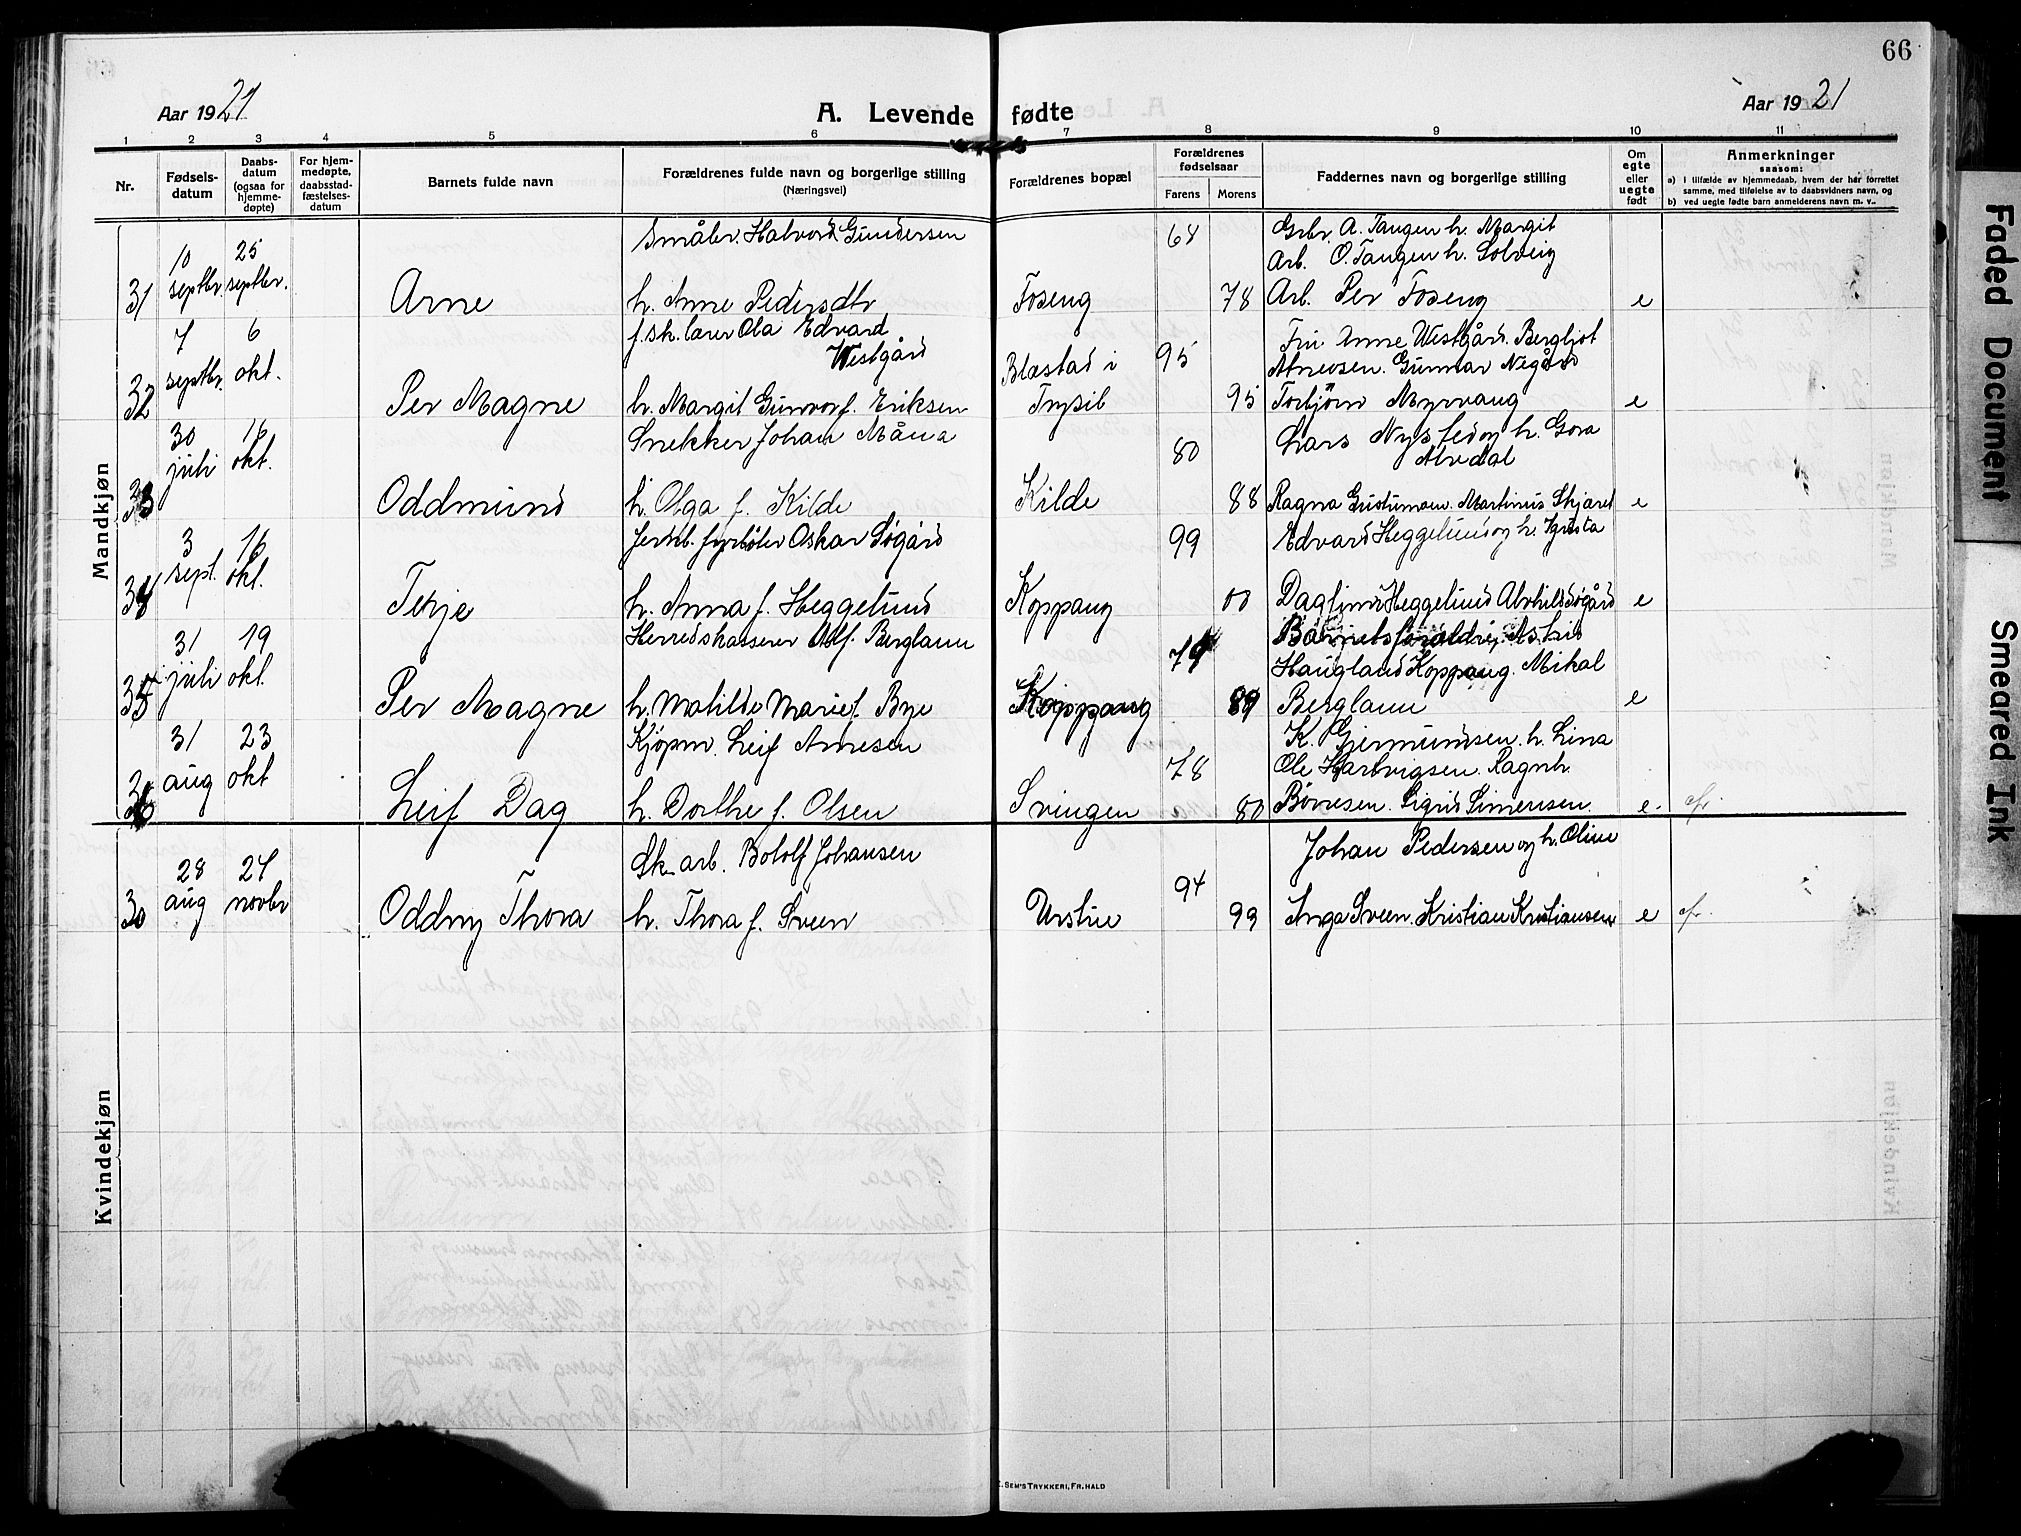 66
Aar 1921
A. Levende fødte
Aar 1921
1 2 3 4 5 6 7 8 9 10 11
Nr.
Fødsels-
datum
Daabs-
datum
(ogsaa for
hjemme-
døpte)
For hjem-
medøpte,
daabsstad-
fæstelses-
datum
Barnets fulde navn
Forældrenes fulde navn og borgerlige stilling
(Næringsvei)
Forældrenes bopæl
Forældrenes
fødselsaar
Farens Morens
Faddernes navn og borgerlige stilling
Om
egte
eller
uegte
født
Anmerkninger
saasom:
a) i tilfælde av hjemmedaab, hvem der har forrettet
samme, med tilføielse av to daabsvidners navn, og
b) ved uegte fødte barn anmelderens navn m. v..
Mandkjøn
Småbr. Halvord Gundersen 68 Grbr. A. Tangen h. Margit
10 25 Arb. O. Tangen h. Solveig
31 septbr. septbr. Arne h. Anne Pedersdtr Foseng 78 Arb. Per Foseng e
7 6 f. sk. lærer Ola Edvard Westgård 95 Fru Anne Westgård. Bergljot
Gunnar Negård
32 septbr. okt. Per Magne h. Margit Gunvor f. Eriksen Blæstad i Trysil 95 Torbjørn Myrvang e
30 16 Snekker Johan Måna 80 Lars og h. Gora
Alvdal
33 juli okt. Oddmund h. Olga f. Kilde Kilde 88 Ragna Martinus Skjæret e
3 16 Jernb. fyrbøter Oskar Søgård 99 Edvard Heggelund og h.
34 sept. okt. Terje h. Anna f. Heggelund Koppang 00 Dagfinn Heggelund Alvhild Søgård e
31 19 Herredskasserer Adf. Berglann 79 Barnets forældre, Astrid
Haugland Koppang. Mikal
35 juli okt. Per Magne h. Matilde Marie f. Bye Koppang 89 Berglann e
31 23 Kjøpm. Leif Arnesen 78 K. Gjermundsen. h. Lina
Ole Hartvigsen. Ragnh.
36 aug okt Leif Dag h. Dorthe f. Olsen Svingen 80 Børresen. Sigrid Simensen e.
Kvindekjøn
28 27 Sk. arb. Botolf Johansen 94 Johan Pedersen og h. Oline
30 aug novbr Oddny Thora h. Thora f. Sveen Urstue 99 Inga Sveen. Kristian Kristiansen e
E. SEM'S TRYKKERI, FR.HALD
Faded Document
Smeared Ink